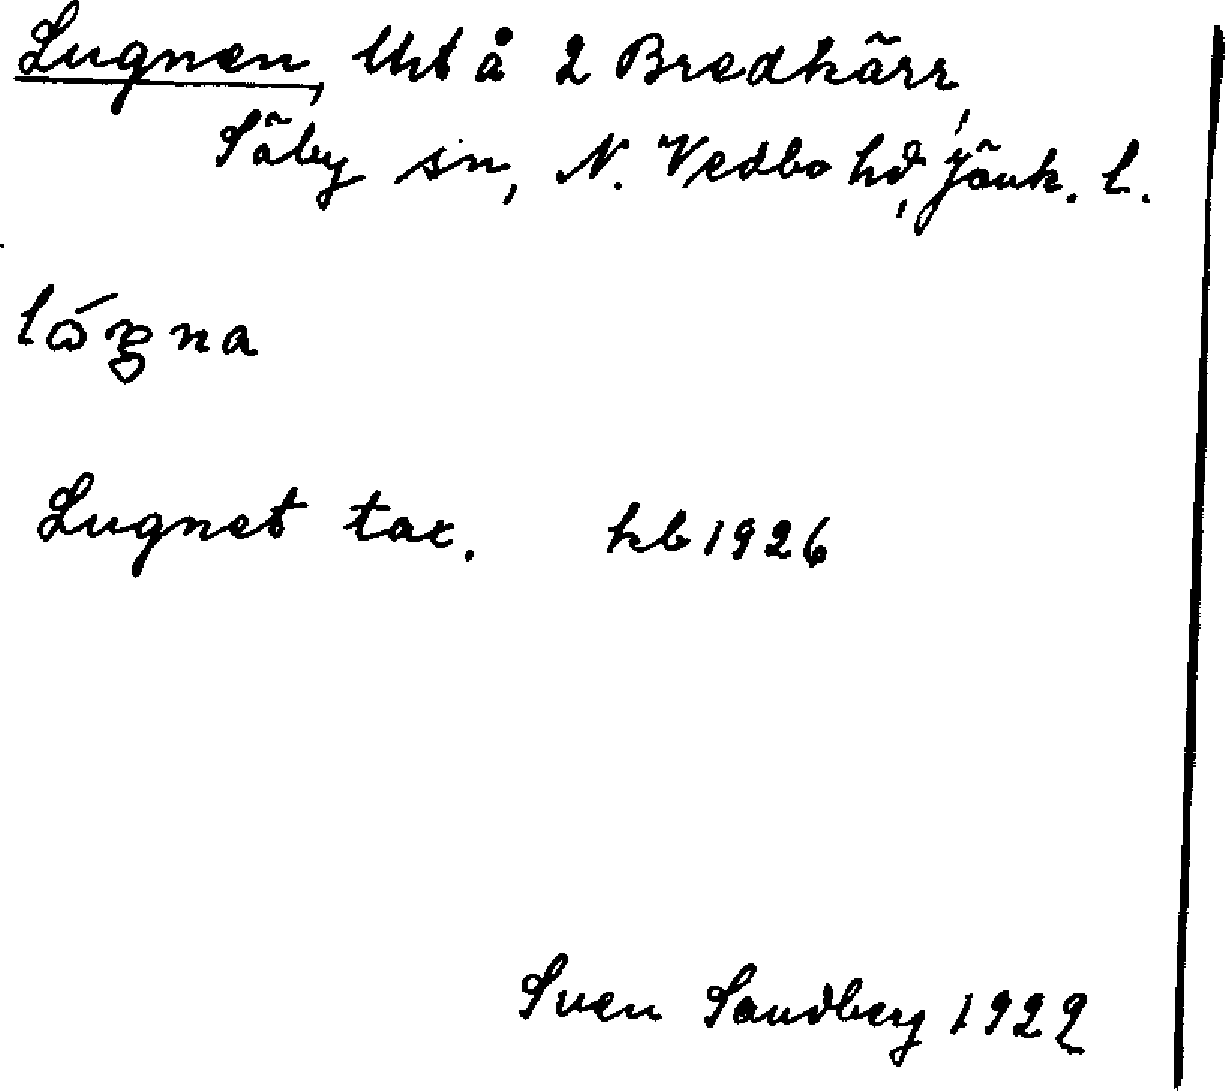 Lugnen, lht å 2 Bredkärr,
Säby sn, N. Vedbo hd, Jönk. l.
Lugnet tax. hb 1926
Sven Sandberg 1929